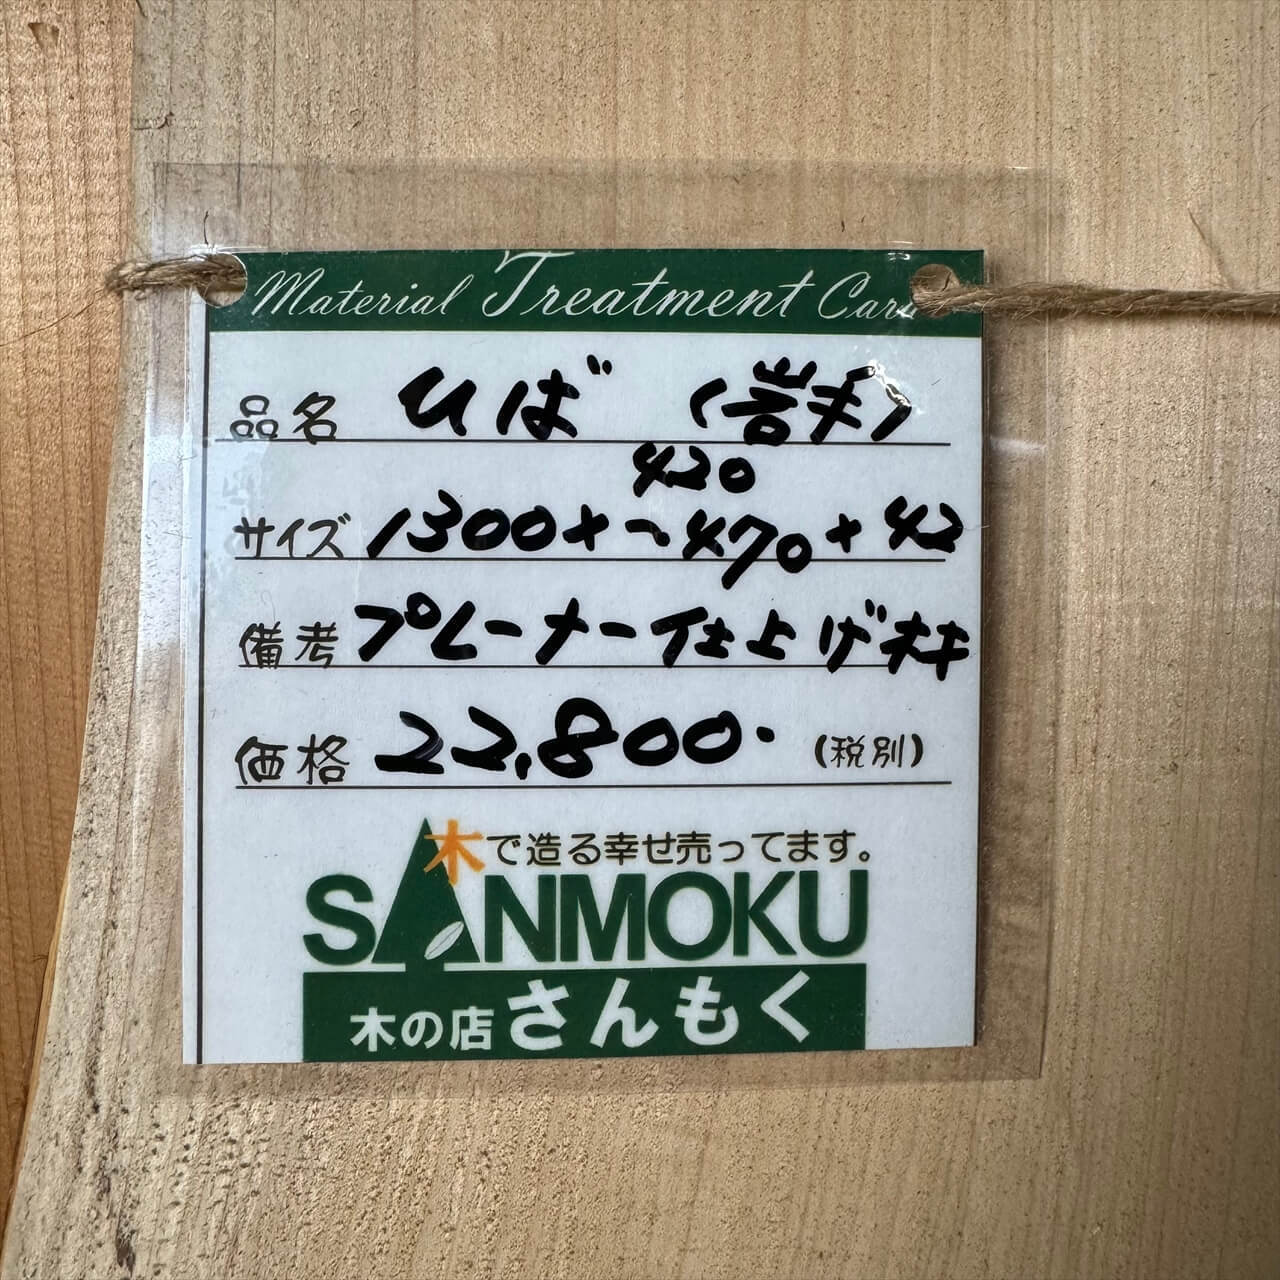 Material Treatment Card
品名 ひば (岩手)
420
サイズ 1300×~470×42
備考 プレーナー仕上げ材
価格 22,800. (税別)
木で造る幸せ売ってます。
SANMOKU
木の店 さんもく